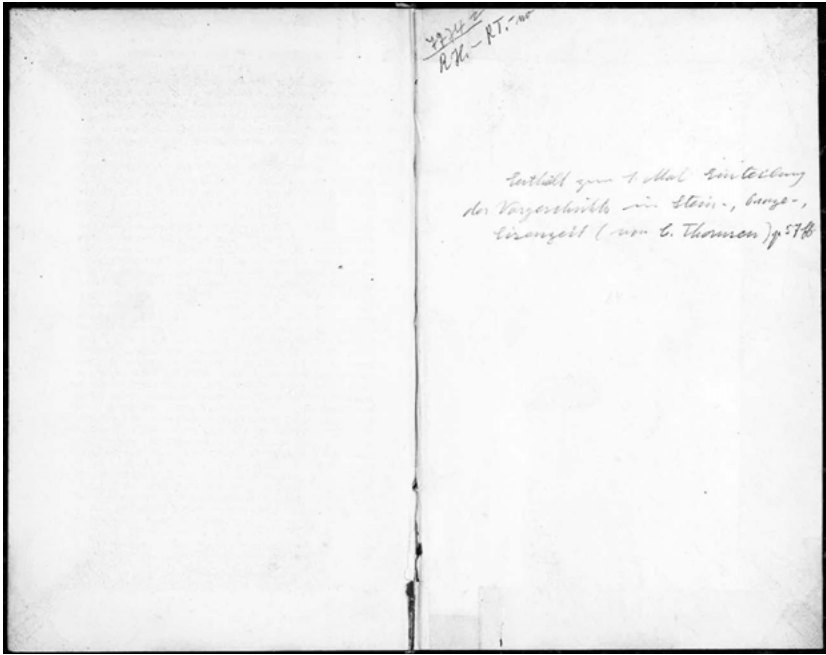 R.H. - RT. -
Enthält zum 1. Mal Einteilung
der Vorgeschichte in Stein-, Bronze-,
Eisenzeit (von C. Thomsen) p 57 ff